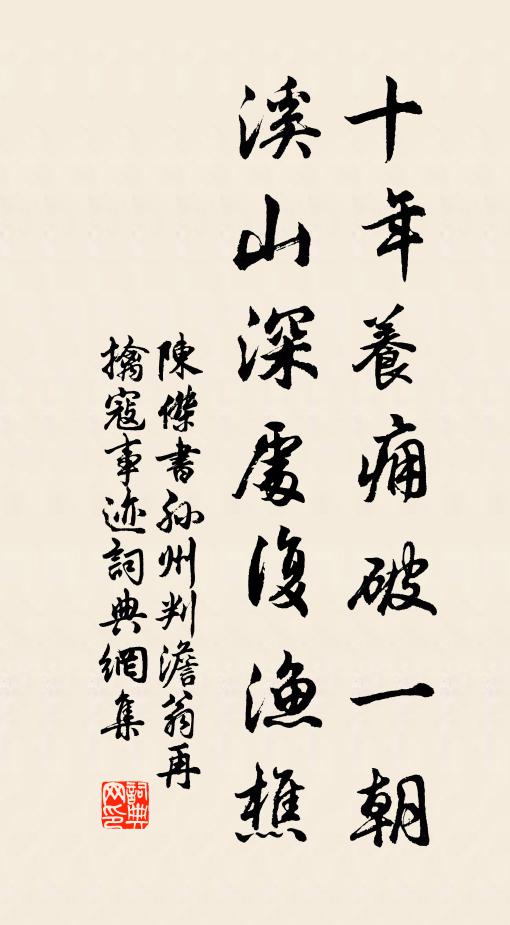 十年養痈破一朝
溪山深處復漁樵
陳傑書孙州判澹翁再
擒寇事迹詞典網集
詞典网印